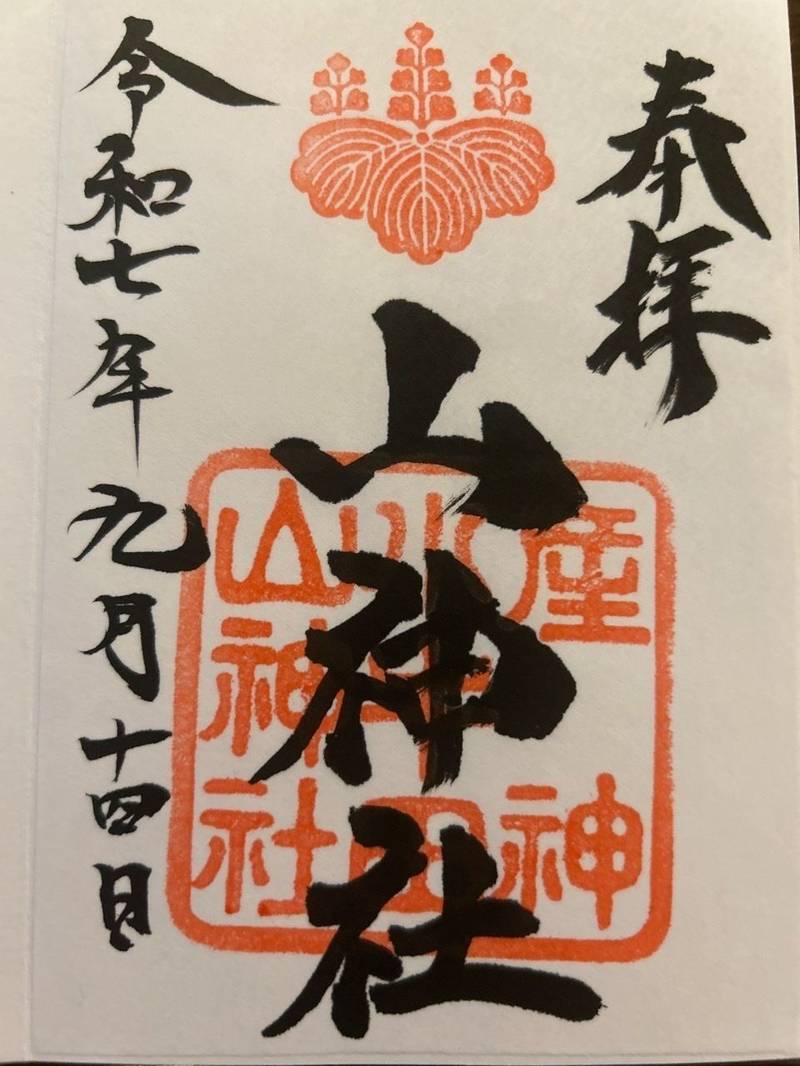 奉拝
山神社
令和七年九月十四日
産神
小牛田
山神社